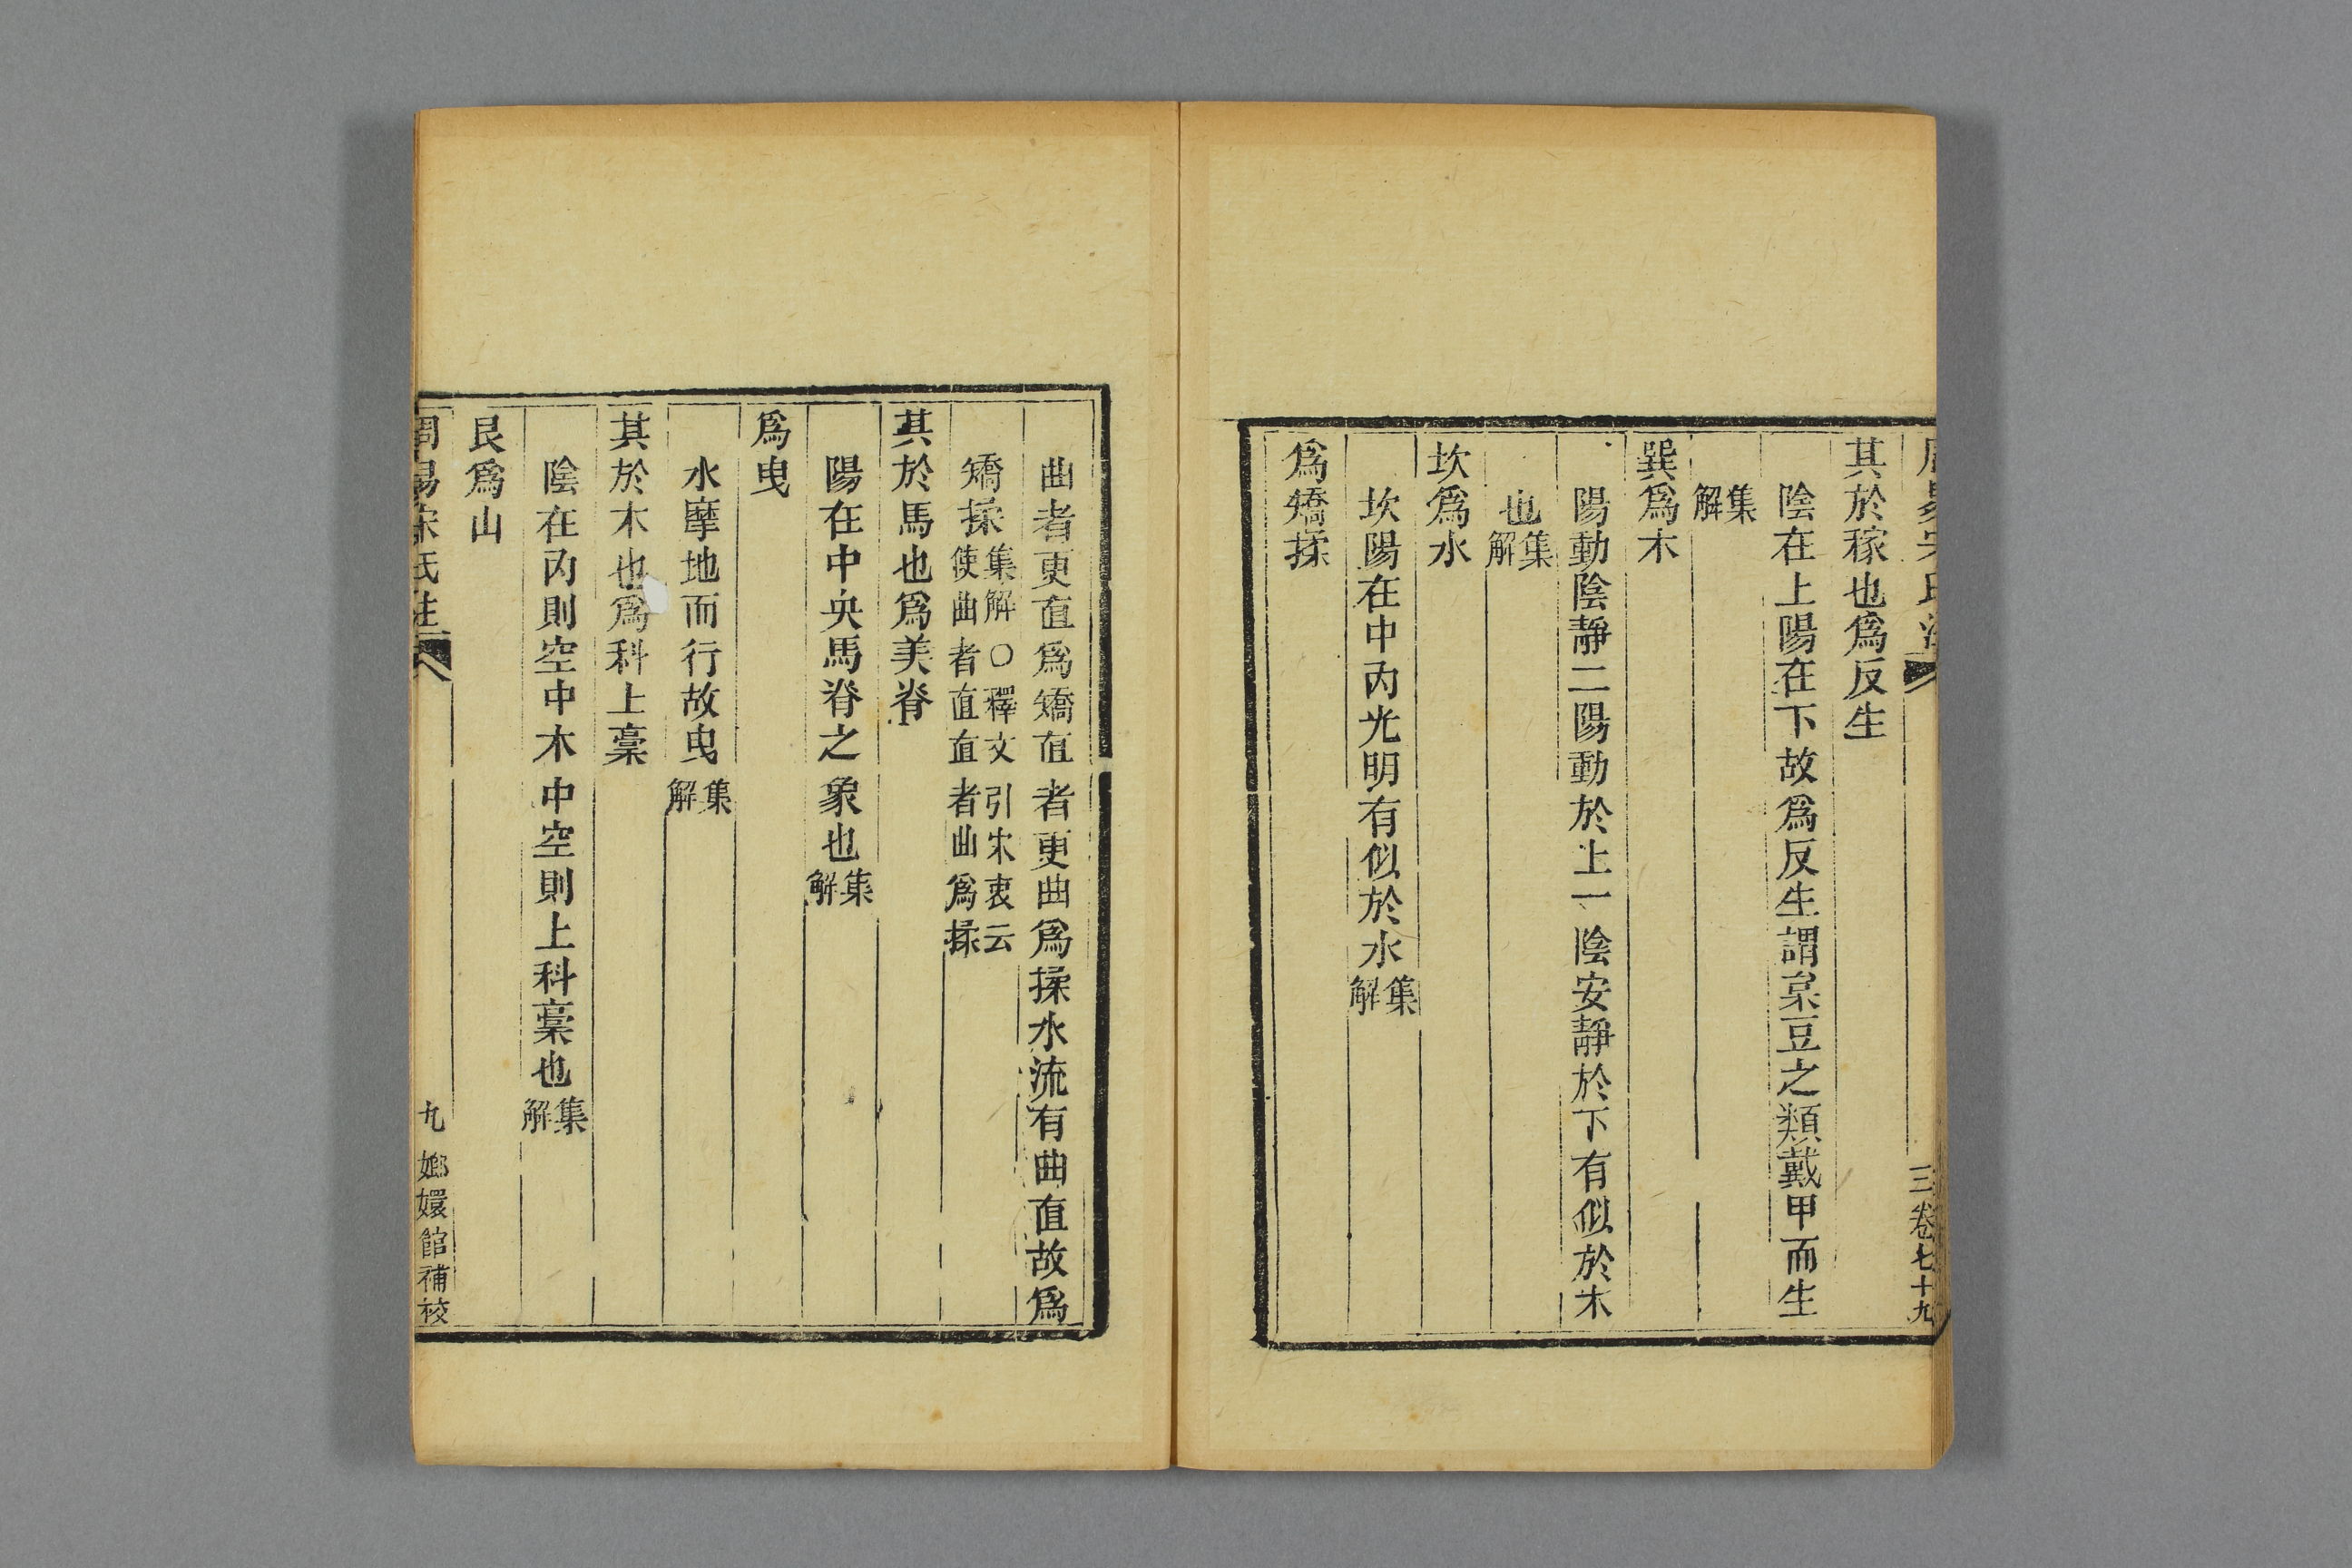 周易宋氏注
三卷七十九
其於稼也爲反生
陰在上陽在下故爲反生謂枲豆之類戴甲而生
集解
巽爲木
陽動陰靜二陽動於上一陰安靜於下有似於木
也集解
坎爲水
坎陽在中內光明有似於水集解
爲矯揉
曲者更直爲矯直者更曲爲揉水流有曲直故爲
矯揉集解○釋文引宋衷云使曲者直直者曲爲揉
其於馬也爲美脊
陽在中央馬脊之象也集解
爲曳
水摩地而行故曳集解
其於木也爲科上槀
陰在內則空中木中空則上科槀也集解
艮爲山
周易宋氏注
九
嫏嬛館補校